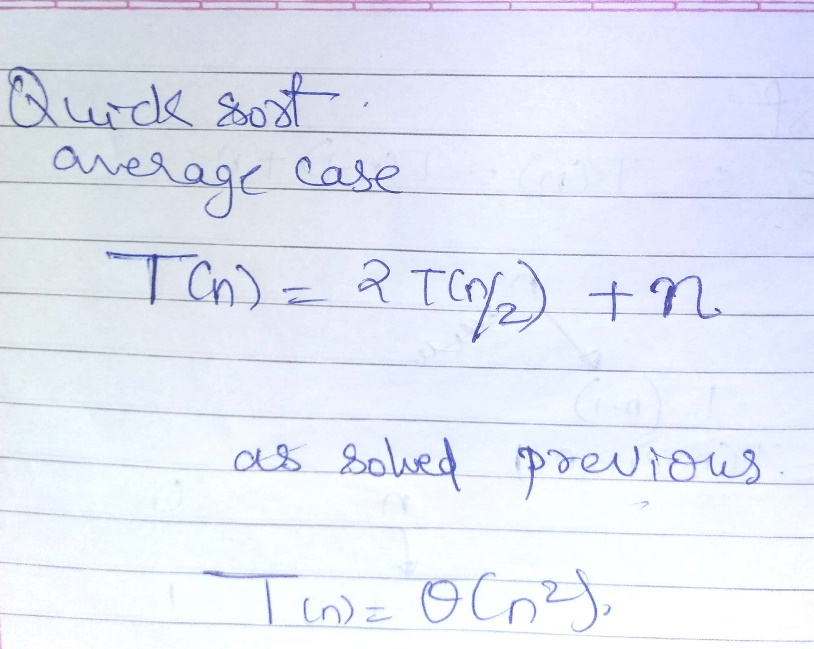 Quick sort.
average case
T(n) = 2T(n/2) + n
as solved previous.
T(n) = θ(n²).